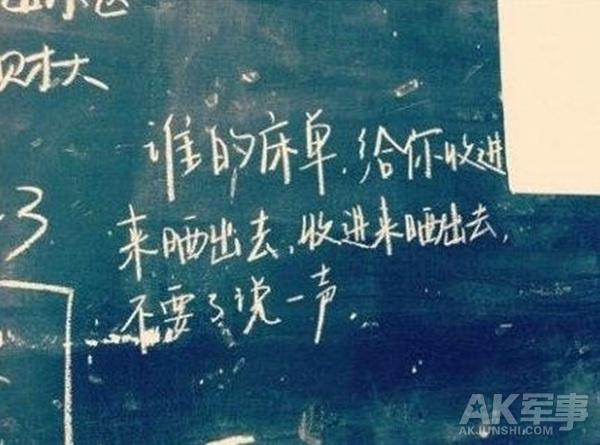 财大
谁的床单,给你收进
来晒出去,收进来晒出去,
不要了说一声.
3
AK军事
AKJUNSHI.COM